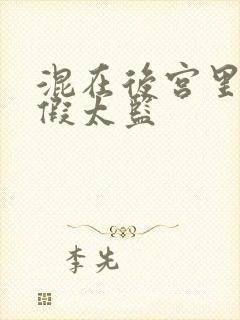 混在後宮里
假太監
李先